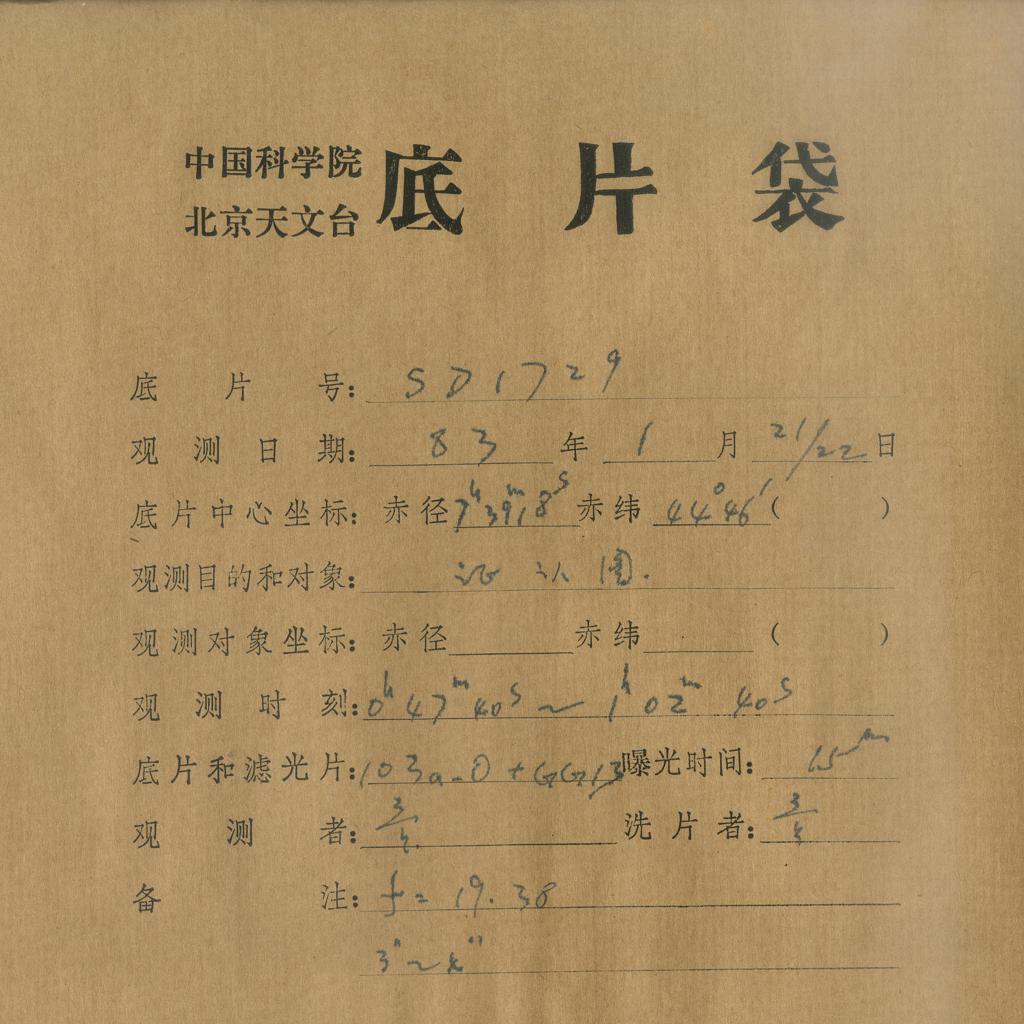 中国科学院
北京天文台 底片袋
底片号: SD1729
观测日期: 83年1月21/22日
底片中心坐标: 赤径7h39m18s赤纬44°46′( )
观测目的和对象: 证认图.
观测对象坐标: 赤径 赤纬 ( )
观测时刻: 0h47m40s~1h02m40s
底片和滤光片: 103a-O+GG13 曝光时间: 15m
观测者: 洗片者:
备注: f=19.38
3"~